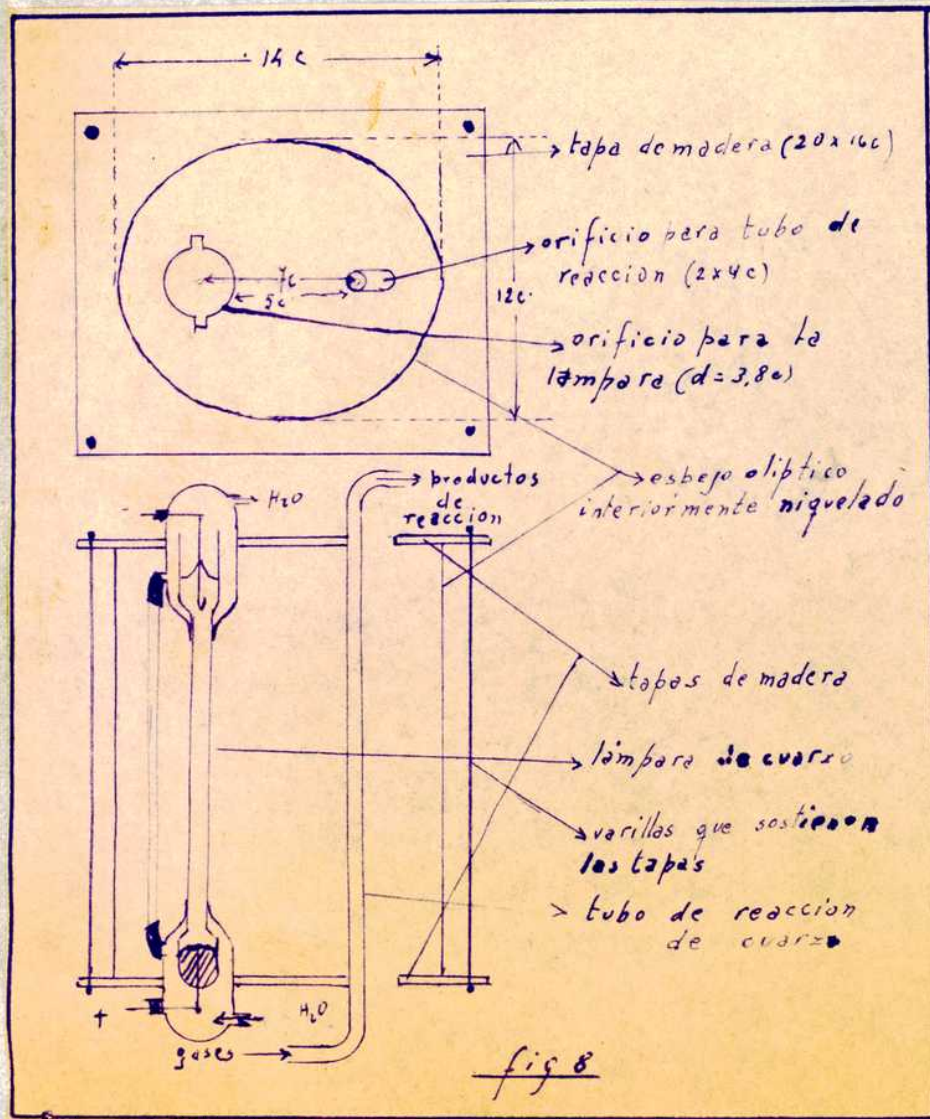 14 c
tapa de madera (20 x 16c)
orificio para tubo de
reaccion (2 x 4c)
7c
5c
12c.
orificio para la
lampara (d = 3,8c)
esbejo oliptico
interiormente niquelado
productos
de
reaccion
H₂O
tapas de madera
lámpara de cuarzo
varillas que sostienen
las tapas
tubo de reaccion
de cuarzo
+
H₂O
gases
fig 8